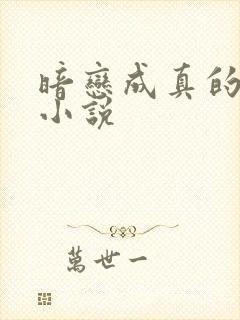 暗戀成真的
小說
萬世一